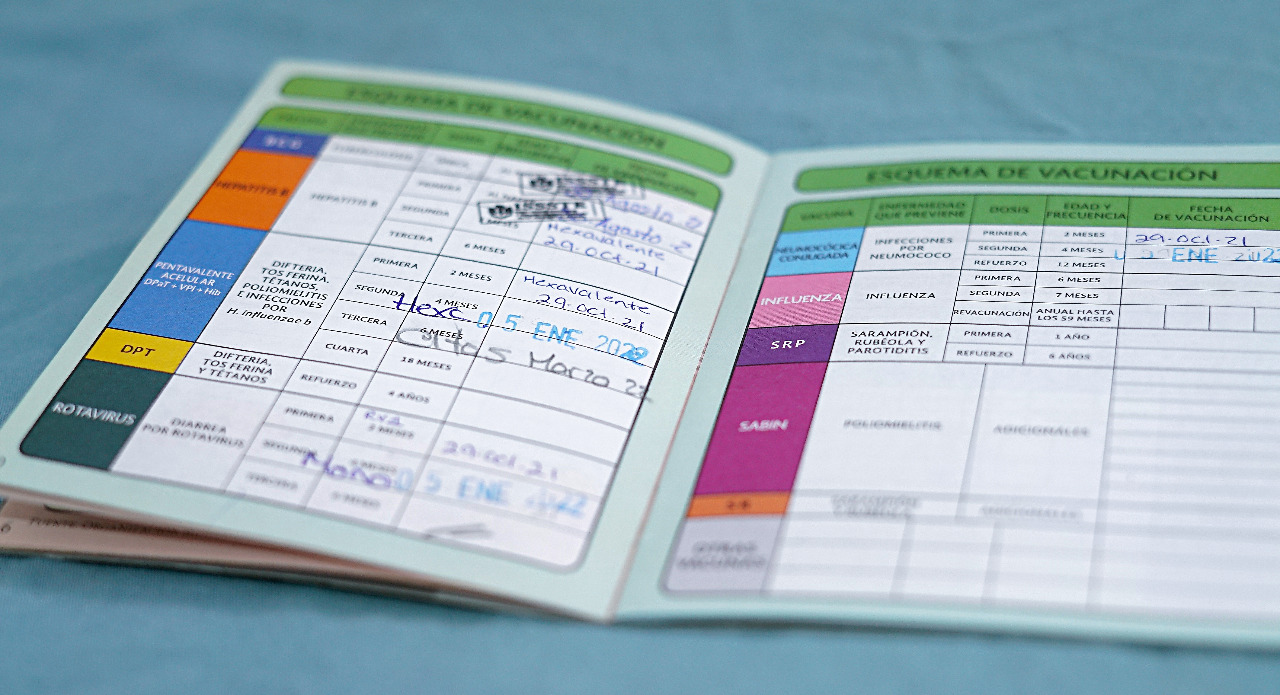 ESQUEMA DE VACUNACIÓN
BCG
HEPATITIS B
HEPATITIS B
PRIMERA
SEGUNDA
TERCERA
6 MESES
ISSSTE
Agosto 2
Agosto 2
Hexavalente
29.oct.21
PENTAVALENTE
ACELULAR
DPaT + VPI + Hib
DIFTERIA,
TOS FERINA,
TÉTANOS,
POLIOMIELITIS
E INFECCIONES
POR
H. influenzae b
PRIMERA
2 MESES
Hexavalente
29.oct.21
SEGUNDA
4 MESES
Hexa
0 5 ENE 2022
TERCERA
6 MESES
5 Marzo 22
CUARTA
18 MESES
DPT
DIFTERIA,
TOS FERINA
Y TÉTANOS
REFUERZO
4 AÑOS
ROTAVIRUS
DIARREA
POR ROTAVIRUS
PRIMERA
2 MESES
29.oct.21
SEGUNDA
0 5 ENE 2022
TERCERA
ESQUEMA DE VACUNACIÓN
VACUNA
ENFERMEDAD
QUE PREVIENE
DOSIS
EDAD Y
FRECUENCIA
FECHA
DE VACUNACIÓN
NEUMOCÓCICA
CONJUGADA
INFECCIONES
POR
NEUMOCOCO
PRIMERA
2 MESES
29.oct.21
SEGUNDA
4 MESES
ENE 2022
REFUERZO
12 MESES
INFLUENZA
INFLUENZA
PRIMERA
6 MESES
SEGUNDA
7 MESES
REVACUNACIÓN
ANUAL HASTA
LOS 59 MESES
SRP
SARAMPIÓN,
RUBÉOLA Y
PAROTIDITIS
PRIMERA
1 AÑO
REFUERZO
6 AÑOS
SABIN
POLIOMIELITIS
ADICIONALES
SR
ADICIONALES
OTRAS
VACUNAS